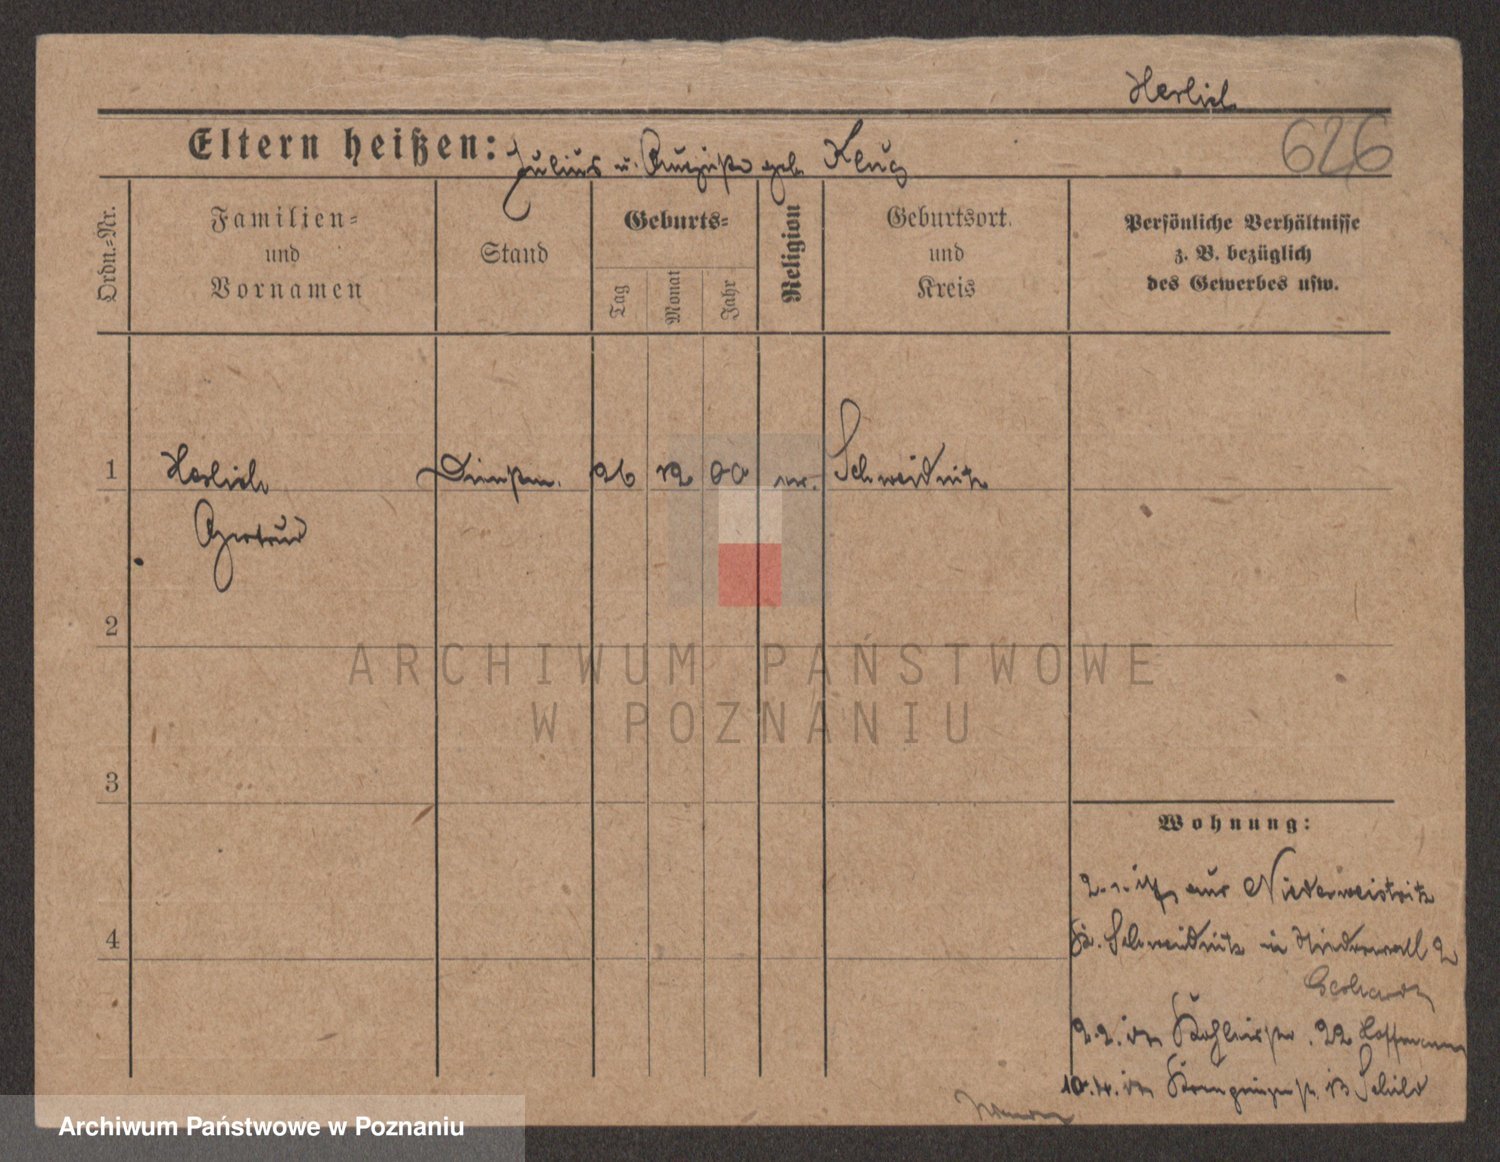 Herlich
Eltern heißen: Julius u. Auguste geb. Klug
626
Ordn.-Nr.
Familien-
und
Vornamen
Stand
Geburts-
Tag
Monat
Jahr
Religion
Geburtsort
und
Kreis
Persönliche Verhältnisse
z. B. bezüglich
des Gewerbes usw.
1
Herlich
Gertrud
Dienstm.
26
12
00
ev.
Schweidnitz
2
3
4
Wohnung:
aus Niederweistritz
Kr. Schweidnitz in Niederwall 2
Gerhardt
2.2. in 22 Hoffmann
10.4. in 13 Schild
ARCHIWUM PAŃSTWOWE
W POZNANIU
Archiwum Państwowe w Poznaniu